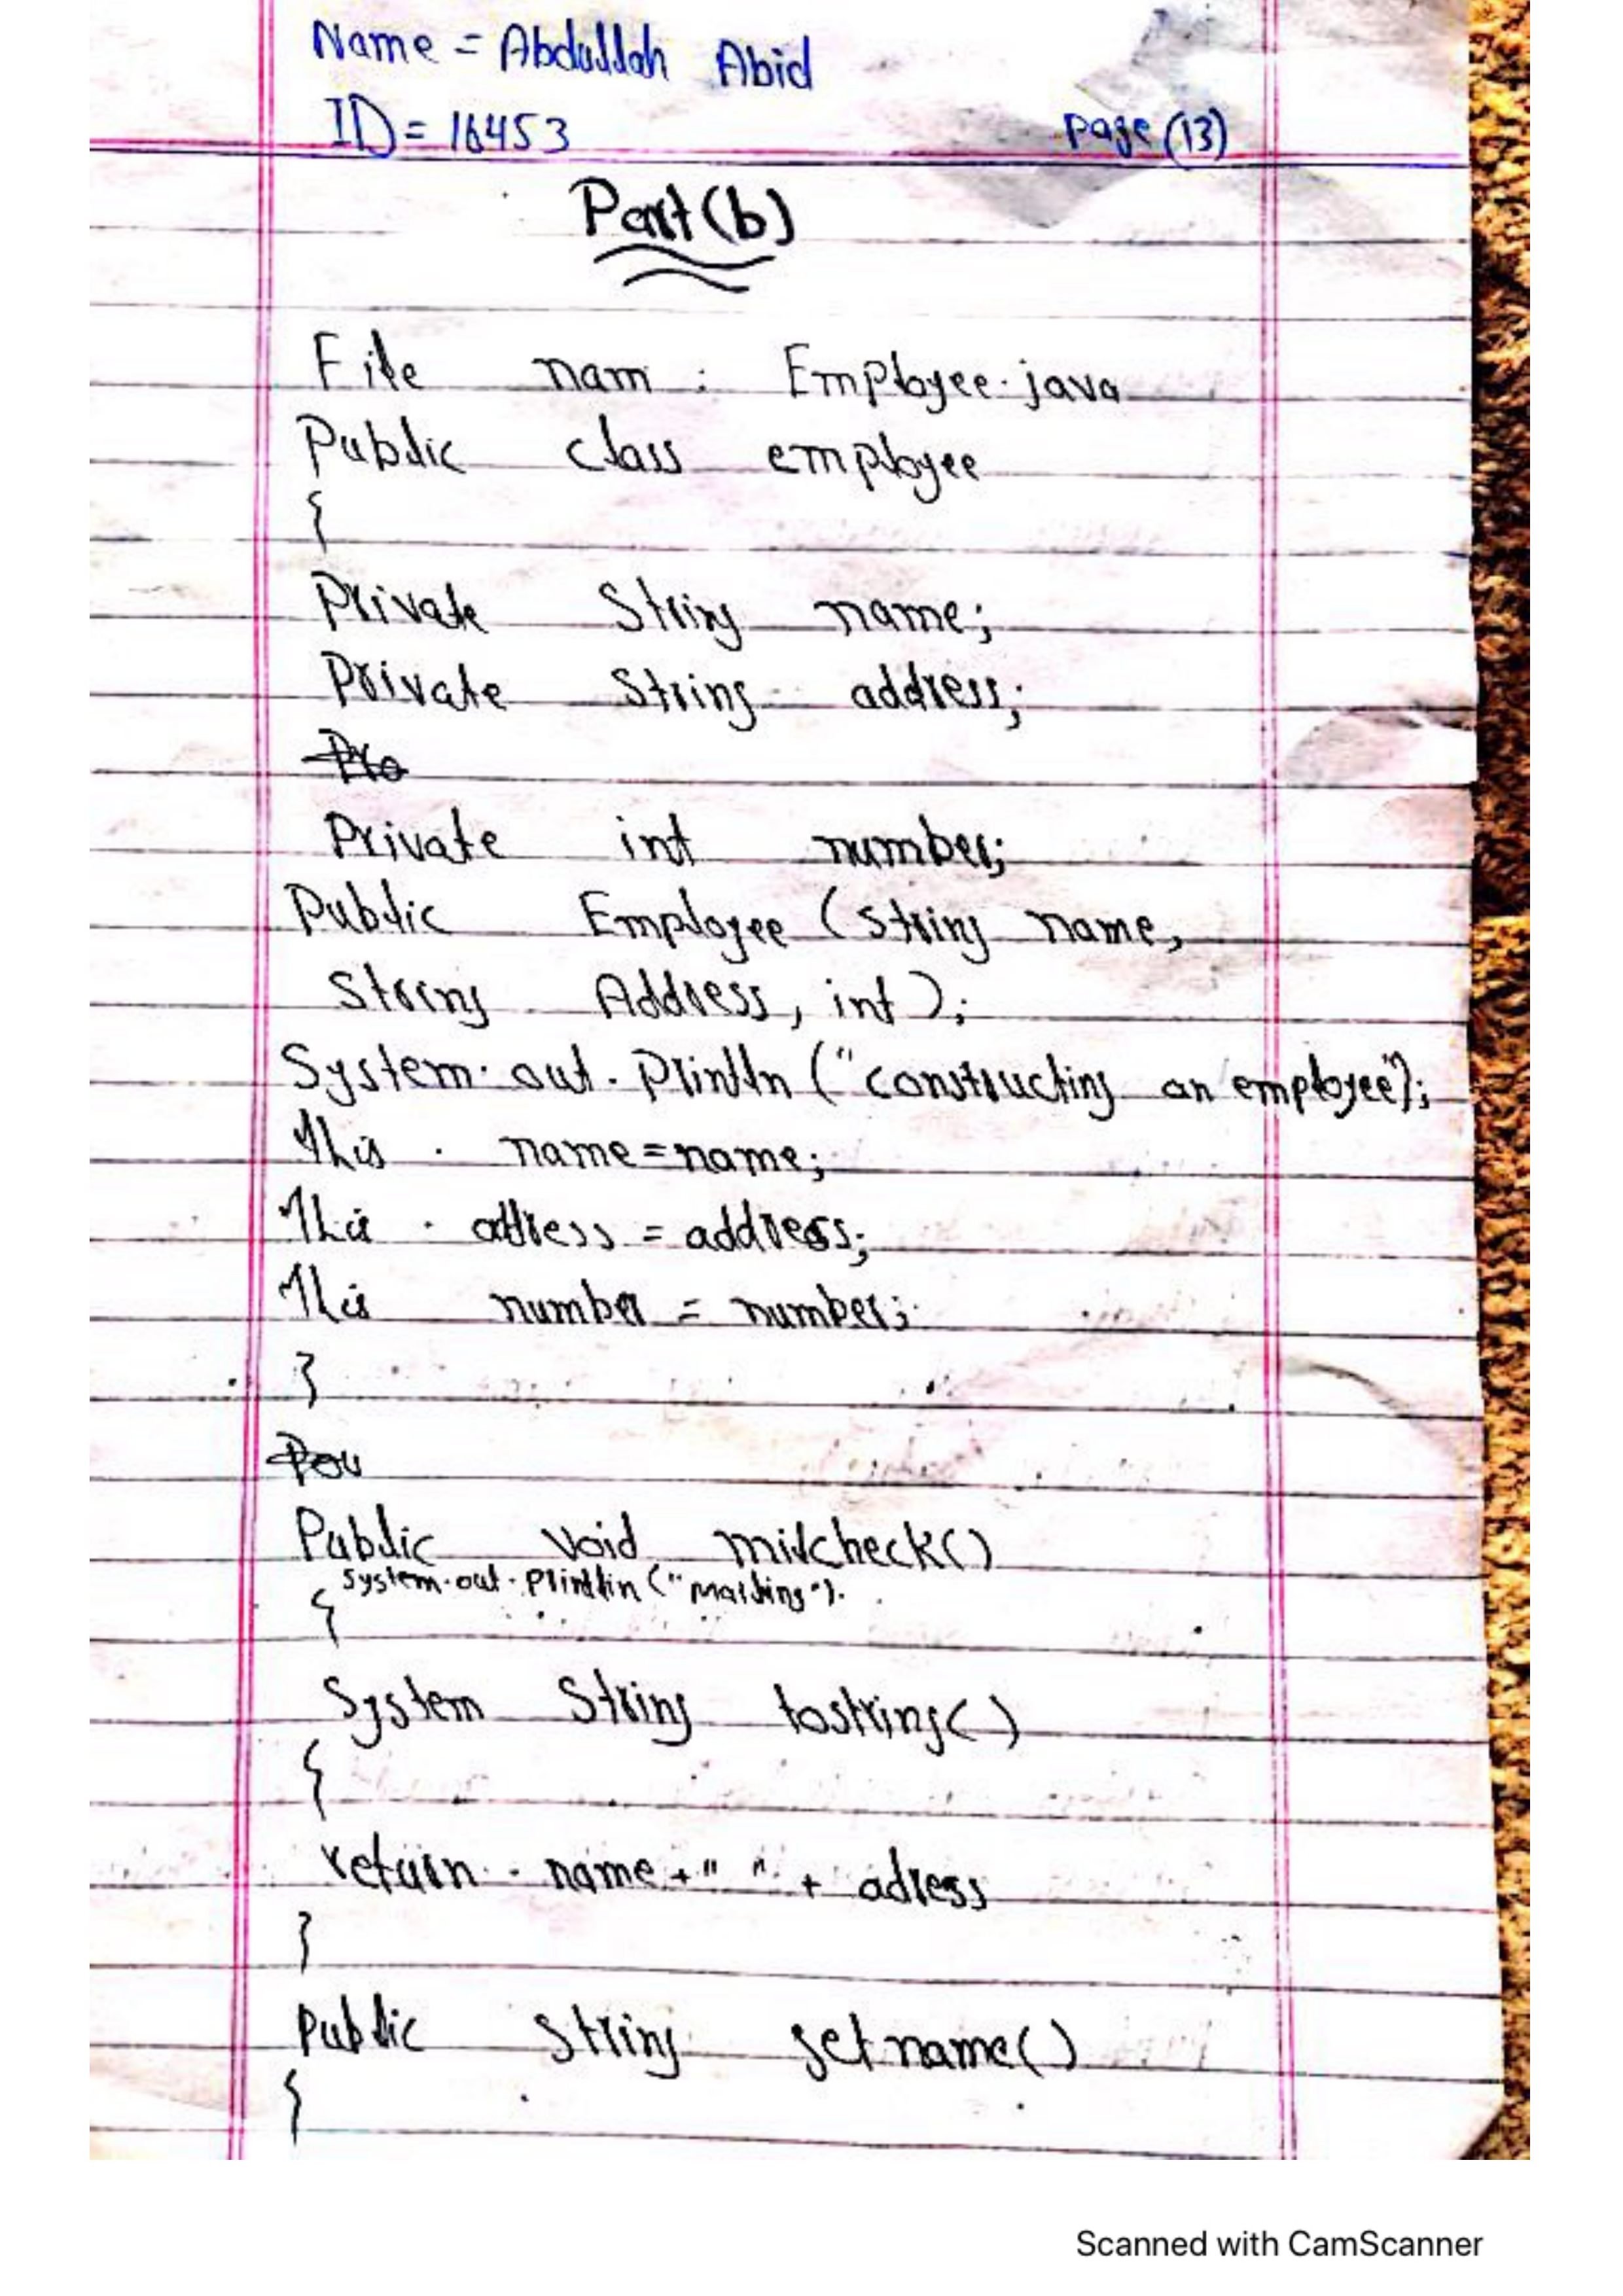 Name = Abdullah Abid
ID = 16453 page (13)
Part (b)
File nam : Employee.java
Public class employee
{
Private String name;
Private String address;
Pro
Private int number;
Public Employee (String name,
String Address, int);
System.out.println ("constructing an employee");
This . name=name;
This . address = address;
This number = number;
}
Pou
Public void milcheck()
System.out.println ("Mailing").
{
System String tostring()
{
return . name + " " + adress
}
Public String getname()
{
Scanned with CamScanner